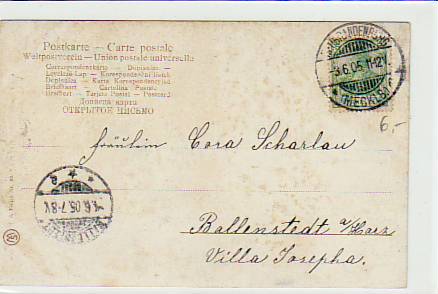 Postkarte – Carte postale
Weltpostverein – Union postale universelle
Correspondenzkarte – Dopisnice –
Levelező-Lap – Korespondenční lístek
Dopisnica – Karta Korespondencyjna
Briefkaart – Cartolina Postale
Brefkort – Tarjeta Postal – Postcard
Дописна карта
ОТКРЫТОЕ ПИСЬМО
NEUBRANDENBURG
3.6.05. 11-12
(MECKLB)
6,-
Fräulein Cora Scharlau
4.6.05. 7-8V.
BALLENSTEDT
Ballenstedt a/Harz
Villa Josepha.